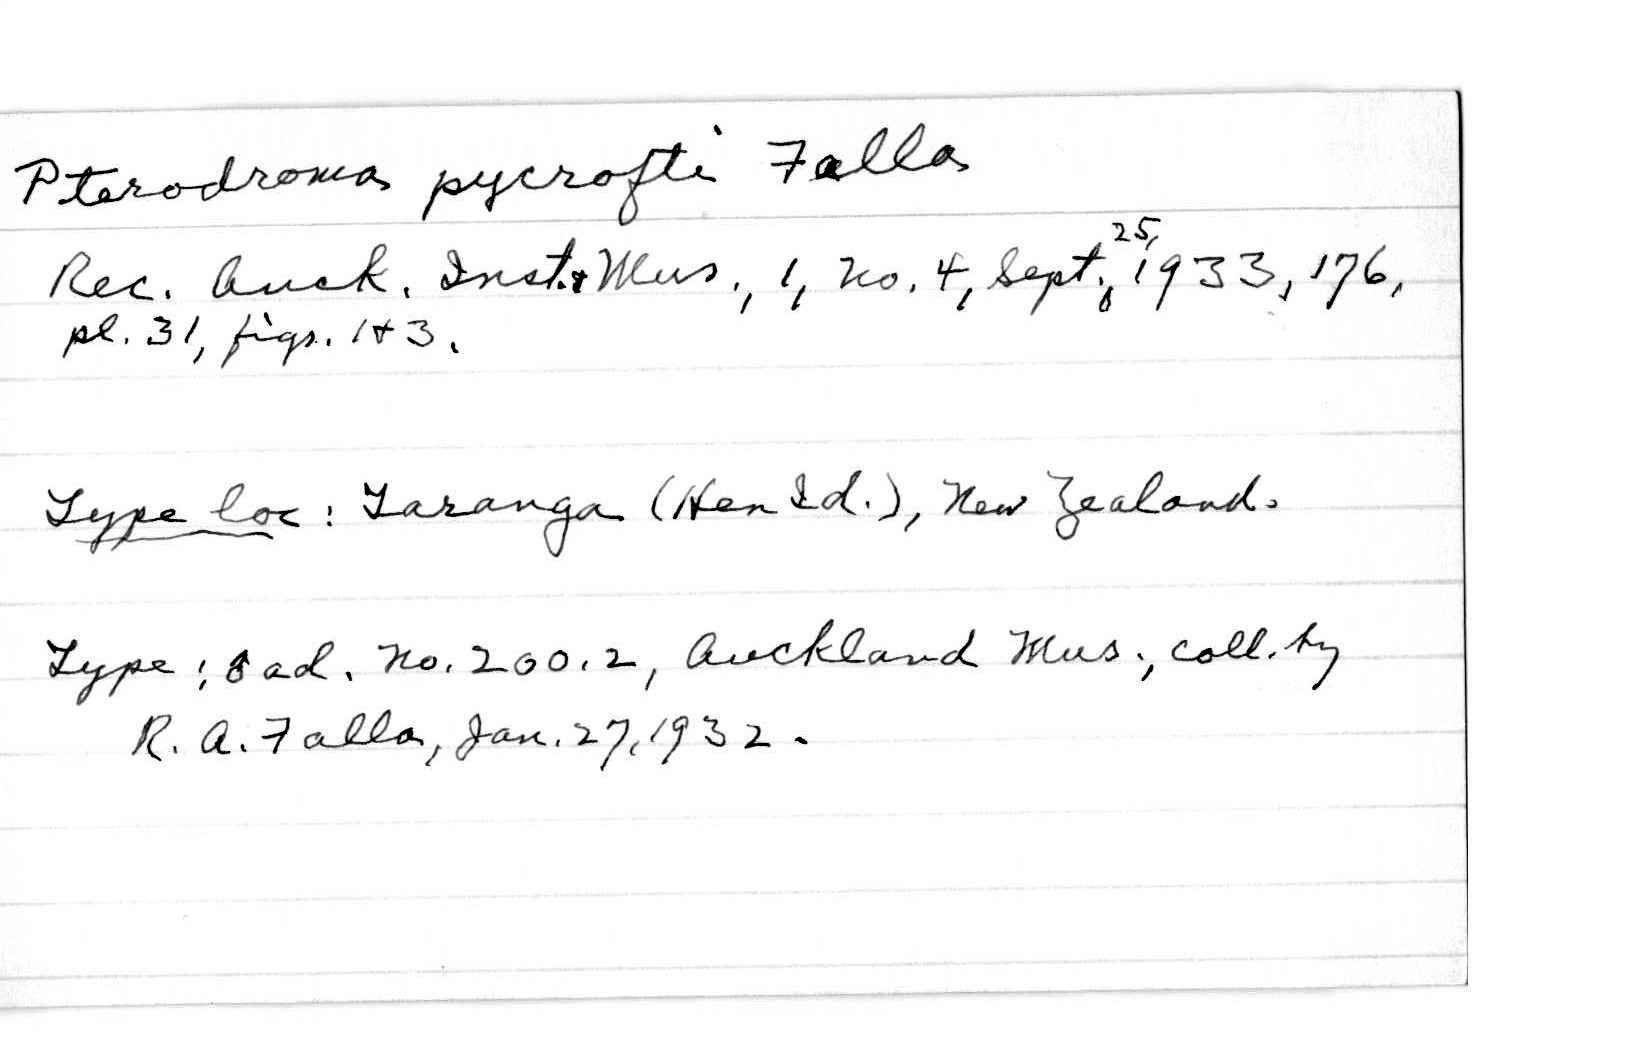 Pterodroma pycrofti Falla
Rec. Auck. Inst. & Mus., 1, no. 4, Sept. 25, 1933, 176,
pl. 31, figs. 1 & 3.
Type loc: Taranga (Hen Id.), New Zealand.
Type: ad. No. 200.2, Auckland Mus., coll. by
R. A. Falla, Jan. 27, 1932.